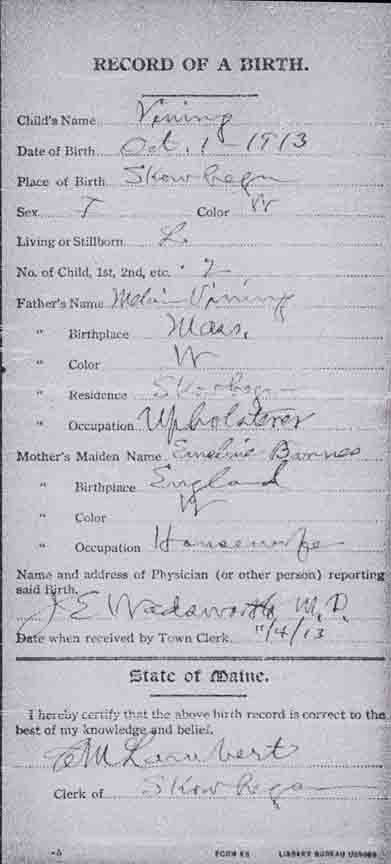 RECORD OF A BIRTH.
Child's Name Vining
Date of Birth Oct. 1 - 1913
Place of Birth Skowhegan
Sex Color W
Living or Stillborn L
No. of Child, 1st, 2nd, etc. 2
Father's Name Vining
" Birthplace Mass.
" Color W
" Residence Skowhegan
" Occupation Upholsterer
Mother's Maiden Name Emeline Barnes
" Birthplace England
" Color W
" Occupation Housewife
Name and address of Physician (or other person) reporting
said Birth.
J E Wadsworth M.D.
Date when received by Town Clerk 11/4/13
State of Maine.
I hereby certify that the above birth record is correct to the
best of my knowledge and belief.
Lambert
Clerk of Skowhegan
FORM LIBRARY BUREAU